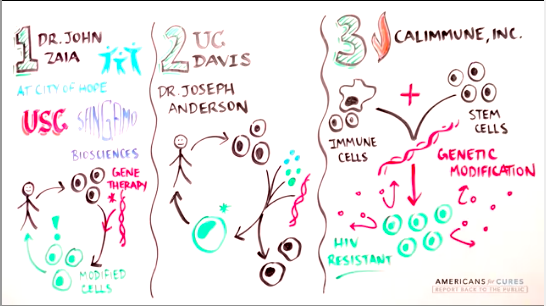 1 DR. JOHN
ZAIA
AT CITY OF HOPE
USC SANGAMO
BIOSCIENCES
GENE
THERAPY
MODIFIED
CELLS
2 UC
DAVIS
DR. JOSEPH
ANDERSON
3 CALIMMUNE, INC.
IMMUNE
CELLS
+
STEM
CELLS
GENETIC
MODIFICATION
HIV
RESISTANT
AMERICANS for CURES
REPORT BACK TO THE PUBLIC